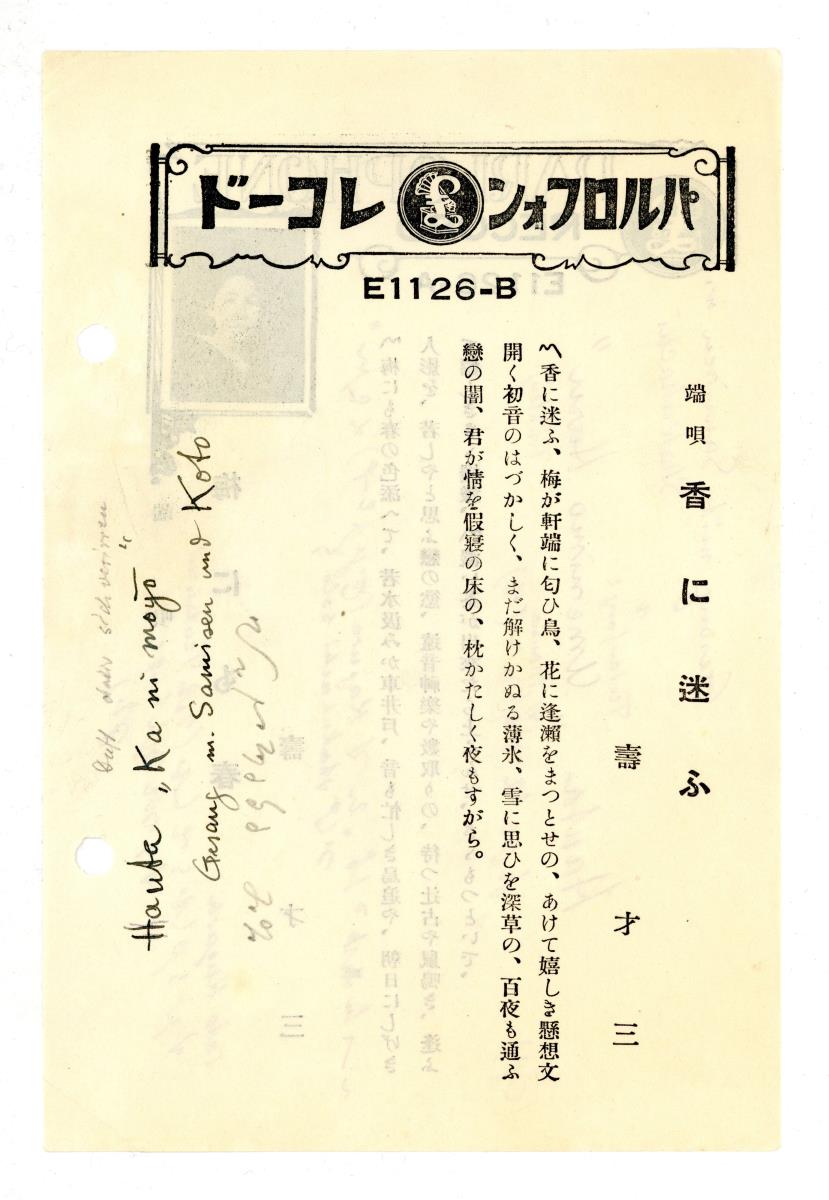 パルロフォン レコード
E1126-B
端唄 香に迷ふ
壽才三
〽香に迷ふ、梅が軒端に匂ひ鳥、花に逢瀬をまつとせの、あけて嬉しき懸想文
開く初音のはづかしく、まだ解けかぬる薄氷、雪に思ひを深草の、百夜も通ふ
戀の闇、君が情を假寢の床の、枕かたしく夜もすがら。
Duft darin sich verirren
Hauta „Ka ni mayō“
Gesang m. Samisen und Koto